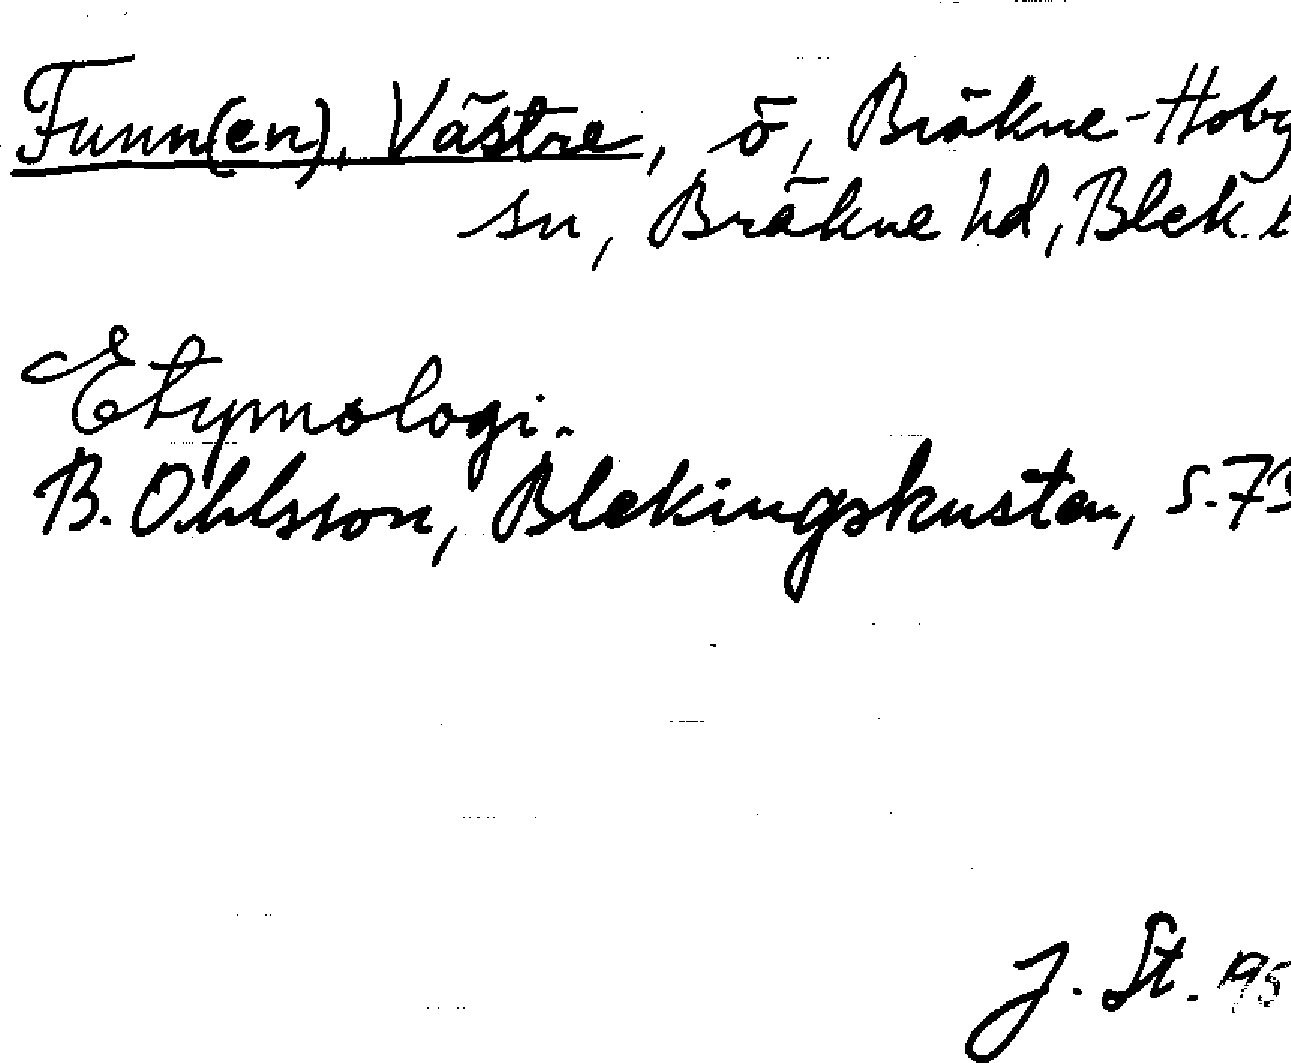 Funn(en), Västre, ö, Bräkne-Hoby
sn, Bräkne hd, Blek. l
Etymologi.
B. Ohlsson, Blekingskusten, s. 73
J. St. 195